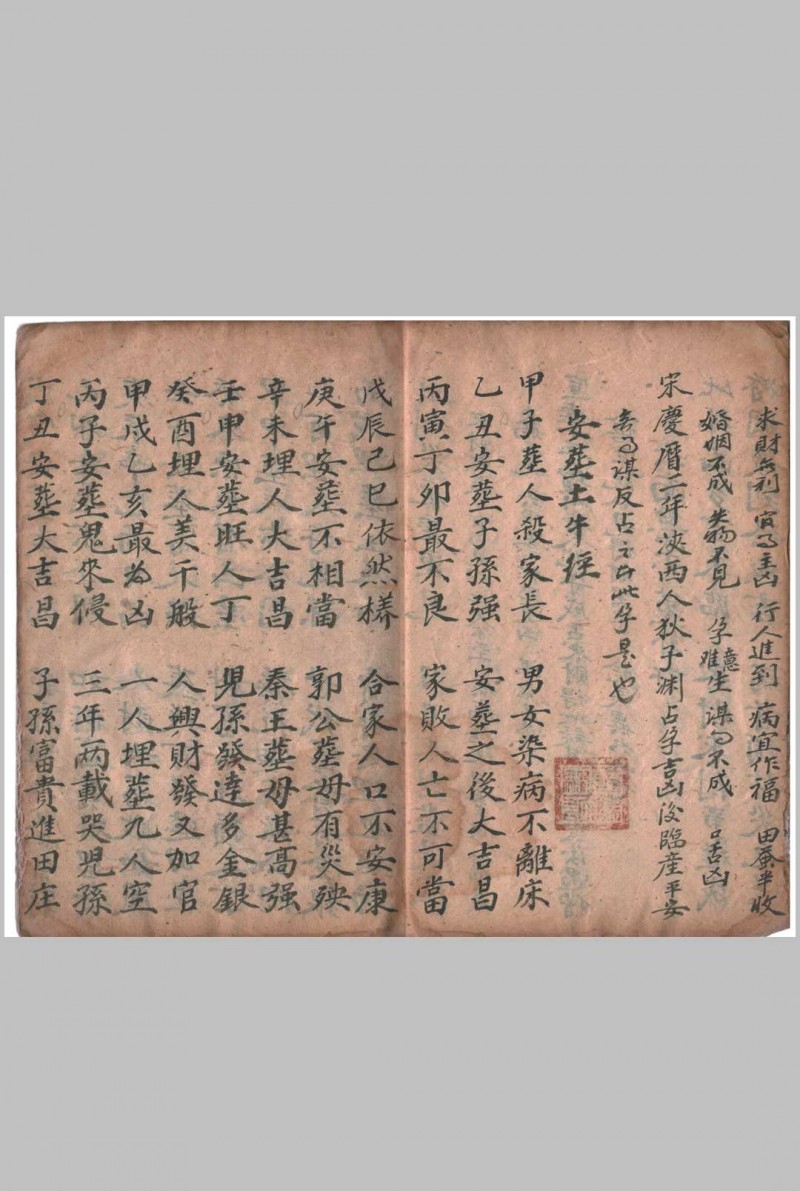 求財無利 官司主凶 行人進到 病宜作福 田蚕半收
婚姻不成 失物不見 孕难生 謀不成 口舌凶
宋慶曆二年陝西人狄子渊占孕吉凶後臨産平安
謀反占之占此孕是也
安塟土牛經
甲子塟人殺家長 男女染病不離床
乙丑安塟子孫強 安塟之後大吉昌
丙寅丁卯最不良 家敗人亡不可當
戊辰己巳依然樣 合家人口不安康
庚午安塟不相當 郭公塟母有災殃
辛未埋人大吉昌 秦王塟母甚髙强
壬申安塟旺人丁 児孫發達多金銀
癸酉埋人美千般 人興財發又加官
甲戌乙亥最为凶 一人埋塟九人空
丙子安塟鬼來侵 三年两載哭児孫
丁丑安塟大吉昌 子孫富貴進田庄